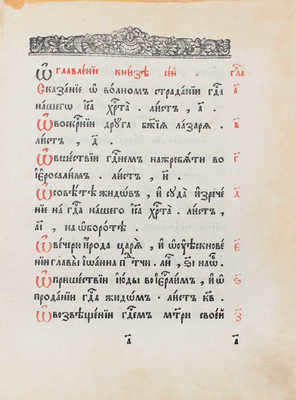 Ѡглавленіе книзѣ сей . гла҃
Сказаніе ѡ волном страданіи гд҃а а҃
нашего іс҃а хр҃та . листъ , а҃ .
Ѡвоскр҃ніи друга бж҃ія лазаря . в҃
листъ , д҃ .
Ѡшествіи гд҃нем нажребяти во г҃
іерⷭ҇алим . листъ , и҃ .
Ѡсовѣтѣ жидов , и суда изрече д҃
ніи на гд҃а нашего іс҃а хр҃та . листъ ,
а҃і , наѡборотѣ .
Ѡвечери ирода царя , и ѡусѣкнове е҃
ніи главы іѡанна пр҃тчи . ли , з҃і наѡ .
Ѡпришествіи іюды во іер҃лим , и ѡ ѕ҃
проданіи гд҃а жидѡм . листъ к҃в .
Ѡвозвѣщеніи гд҃ем мт҃ри своей з҃
а҃ а҃